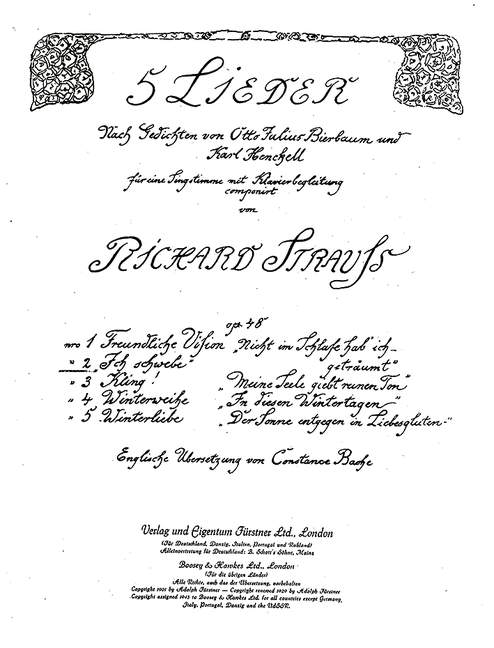 5 LIEDER
Nach Gedichten von Otto Julius Bierbaum und
Karl Henckell
für eine Singstimme mit Klavierbegleitung
componirt
von
RICHARD STRAUSS
op. 48
nro 1 Freundliche Vision „Nicht im Schlafe hab' ich
geträumt"
" 2 „Ich schwebe"
" 3 Kling! „Meine Seele giebt reinen Ton"
" 4 Winterweihe „In diesen Wintertagen-"
" 5 Winterliebe „Der Sonne entgegen in Liebesgluten-"
Englische Übersetzung von Constance Bache
Verlag und Eigentum Fürstner Ltd., London
(Für Deutschland, Danzig, Italien, Portugal und Rußland)
Alleinvertretung für Deutschland: B. Schott's Söhne, Mainz
Boosey & Hawkes Ltd., London
(Für die übrigen Länder)
Alle Rechte, auch das der Übersetzung, vorbehalten
Copyright 1901 by Adolph Fürstner — Copyright renewed 1929 by Adolph Fürstner
Copyright assigned 1943 to Boosey & Hawkes Ltd. for all countries except Germany,
Italy, Portugal, Danzig and the USSR.